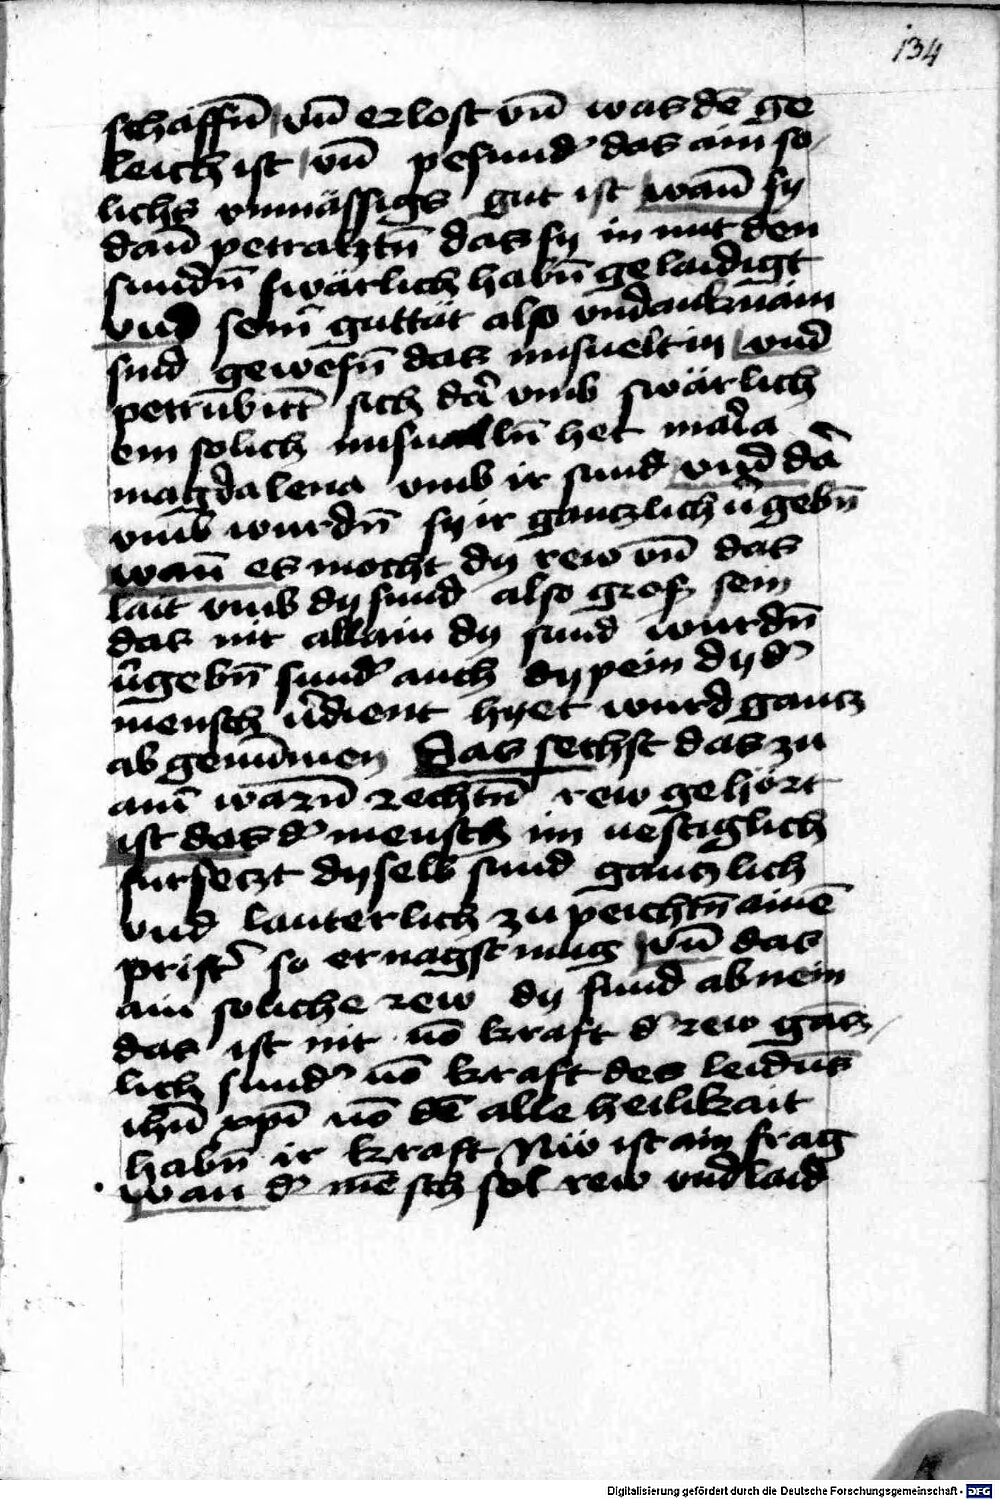 134
schaffn̄ vn̄ erlost vn̄ was dē ge
leich ist vn̄ pesund' das ain so
lichs vnmässigs gut ist wan̄ sy
dan̄ petrachtn̄ das sy in mit den
sundn̄ swärlich habn̄ gelaidigt
vnd sein̄ guttät also vndanknäm
sind gewesn̄ das missuelt in vnd
petrübt sich dar̄ vmb swärlich
ein solich missualln̄ het maria
magdalena vmb ir sund vnd dar̄
vmb wurdn̄ sy ir gantzlich v̄gebn̄
wan̄ es mocht dy rew vn̄ das
lait vmb dy sund also gross sein
das nit allain dy sund wurdn̄
v̄gebn̄ sund' auch dy pein dy d'
mensch v̄dient hyet wurd gantz
ab genūmen Das sechst das zu
ain̄ warn̄ rechtn̄ rew gehört
ist das d' mensch im uestiglich
fursetzt dyselb sund gantzlich
vnd lauterlich zu peichtn̄ ainē
prist' so er nagst mug vn̄ das
ain soliche rew dy sund abnem
das ist nit uō kraft d' rew gātz
lich sund' uō kraft des leidn̄s
ihū xpi uō dē alle heilikait
habn̄ ir kraft Nw ist ain frag
wan d' mēsch sol rew vnd laid
Digitalisierung gefördert durch die Deutsche Forschungsgemeinschaft - DFG